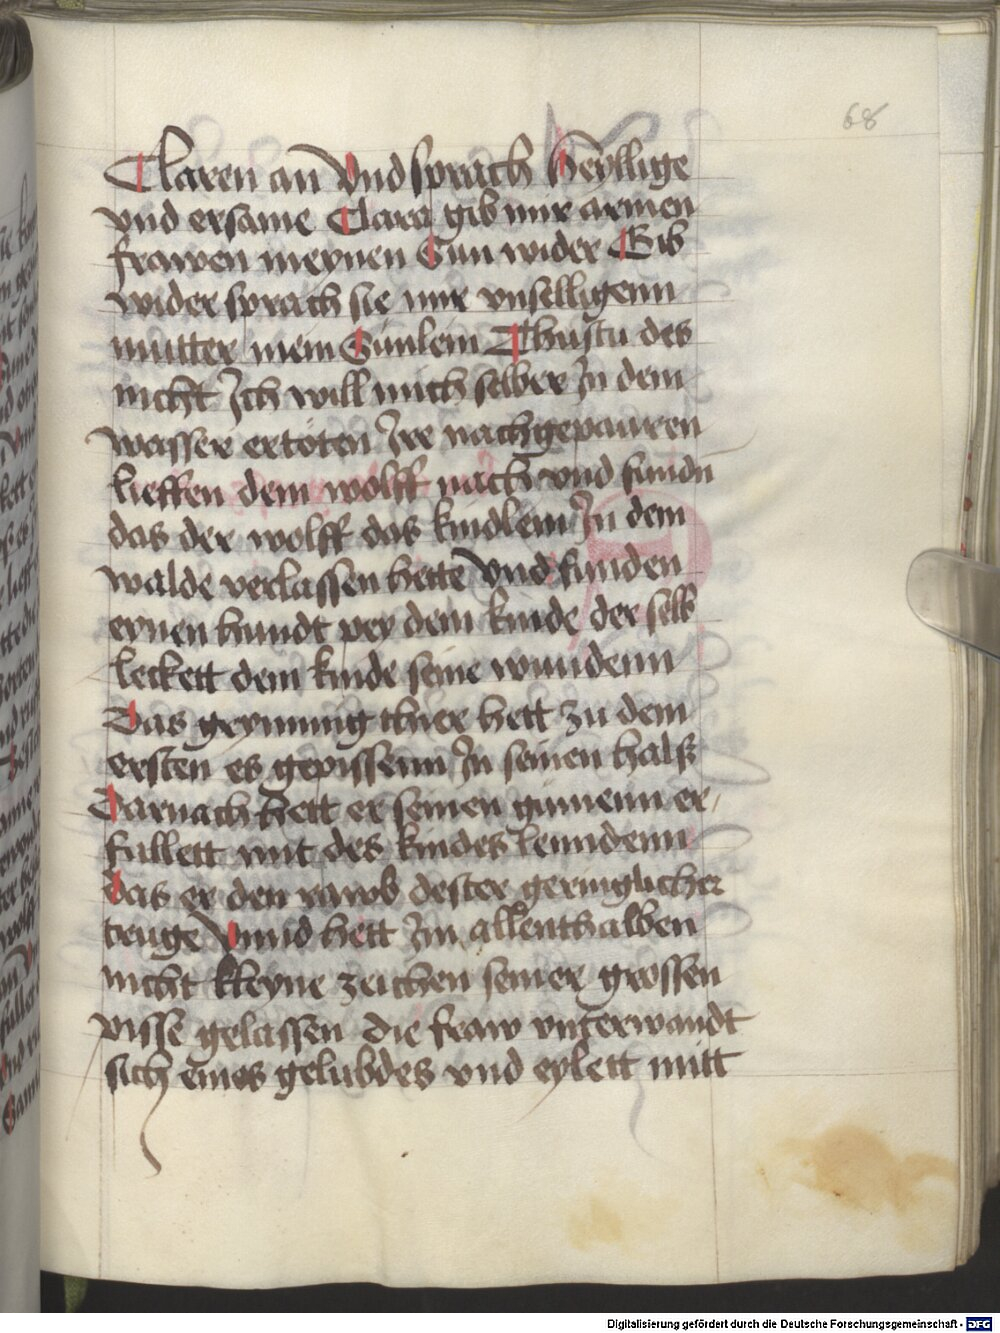 68
Claren an Vnd sprach Heyllige
vnd ersame Clara gib mir armen
frawen meynen Sun wider Gib
wider sprach sie mir vnselligenn
mutter mein Sunlein Thustu des
nicht Ich will mich selber In dem
wasser ertöten Ire nachgepauren
lieffen dem wolff nach vnd funden
das der wolff das kindlein In dem
walde verlassen hette Vnd funden
eynen hundt pey dem kinde der selb
leckett dem kinde seine wundenn
Das grymmig thier hett zu dem
ersten es gepissenn In seinen halß
Darnach hett er seinen gumenn er
fullett mit des kindes lenndenn
das er den rawb dester geringlicher
truge Vnnd hett Im allenthalben
nicht kleyne zeichen seiner grossen
pisse gelassen Die fraw vnterwandt
sich eines gelubdes vnd eylett mitt
Digitalisierung gefördert durch die Deutsche Forschungsgemeinschaft - DFG